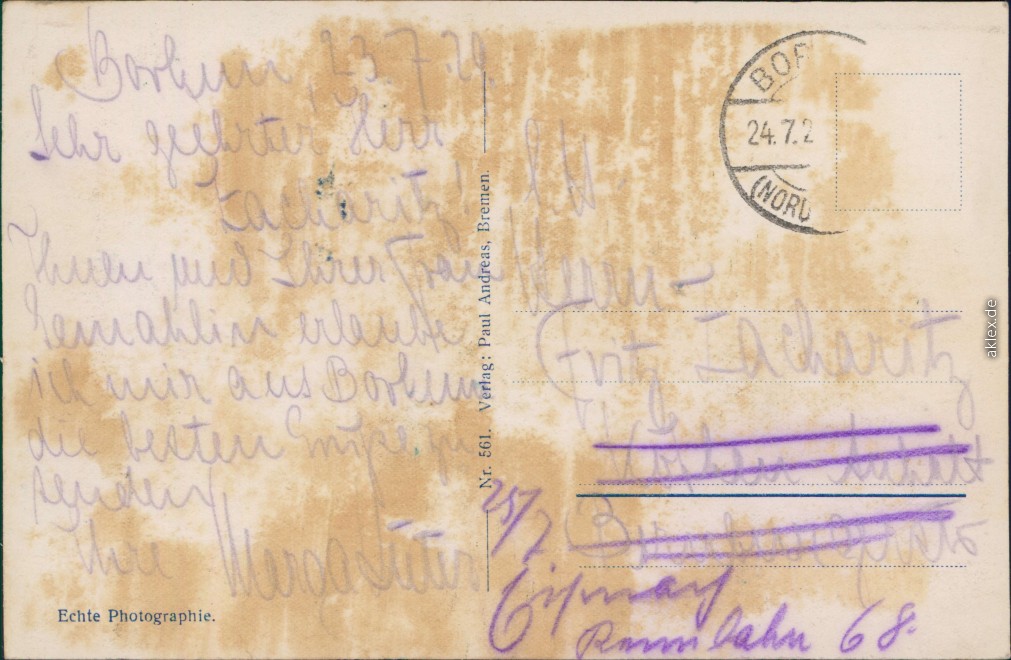 Borkum, 23.7.29.
Sehr geehrter Herr
Zacharitz!
Ihnen und Ihrer Frau
Gemahlin erlaube
ich mir aus Borkum
die besten Grüße zu
senden
Ihre
Echte Photographie.
Nr. 561. Verlag: Paul Andreas, Bremen.
BOR
24.7.2
(NORD
Herrn
Fritz Zacharitz
Köthen Anhalt
25/7
Eisenach
Rennbahn 68.
aklex.de